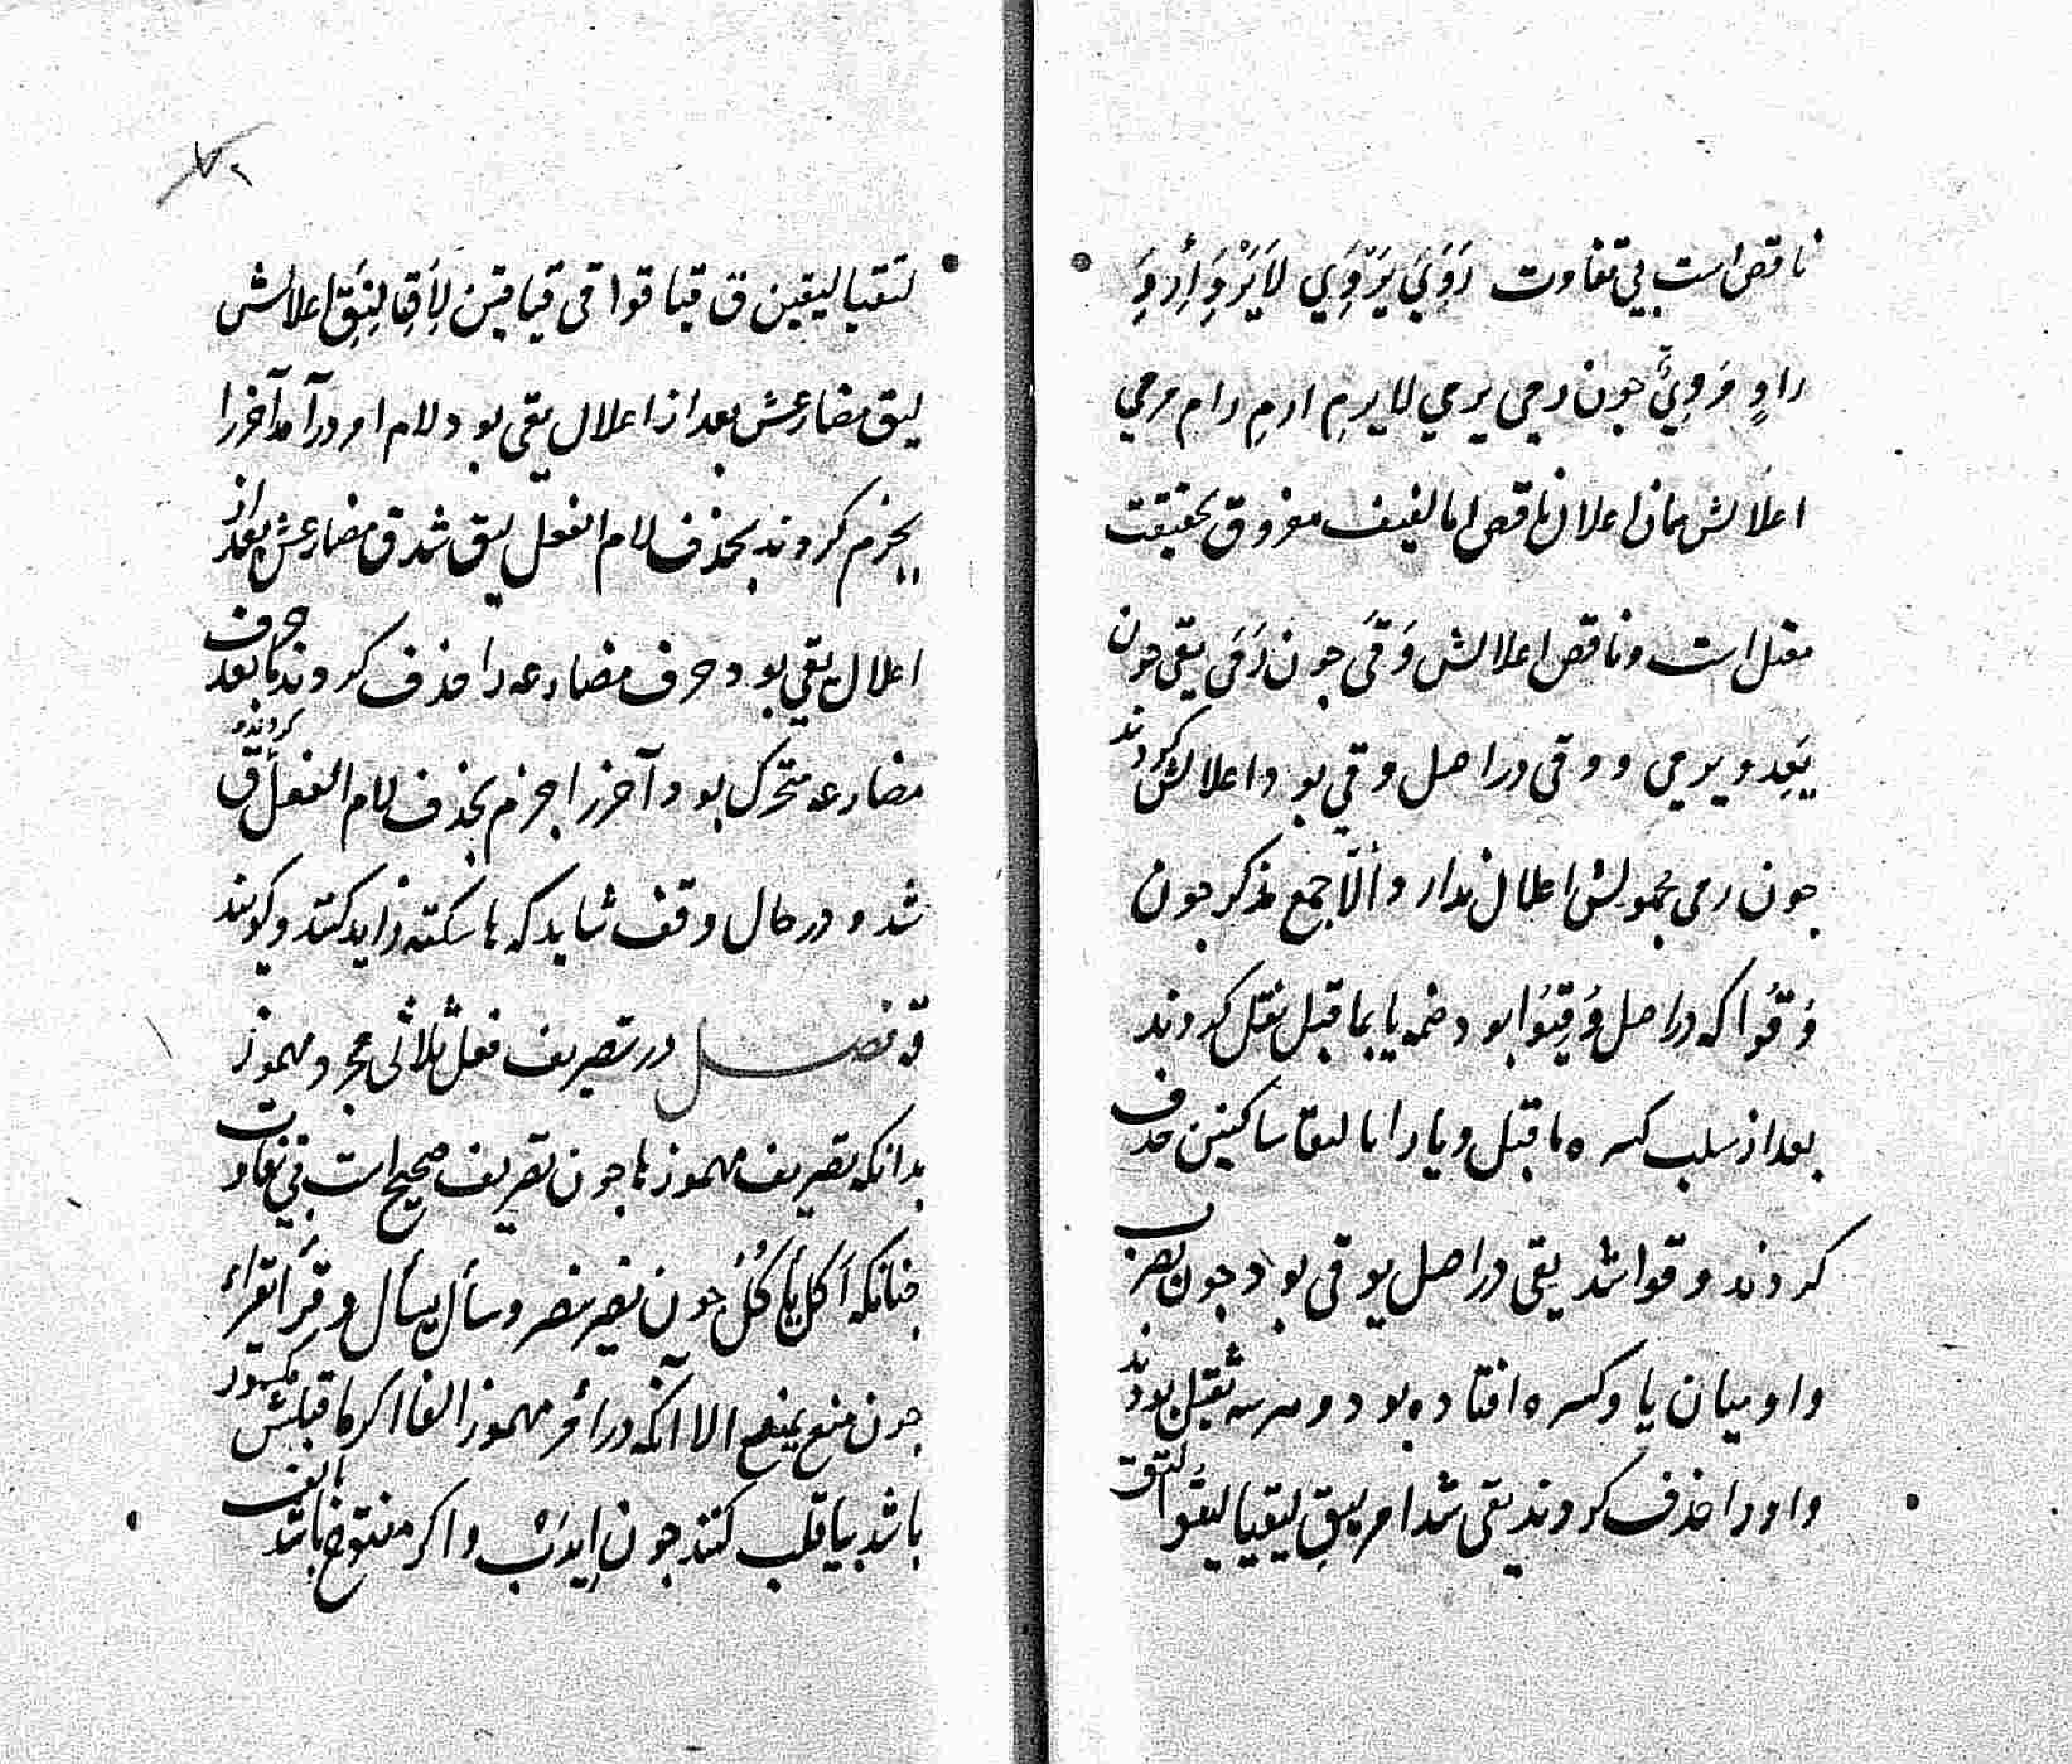 ناقص است بی تفاوت رَوَيَ يَرْوِي لَايَرْوِ اِرْوِ
راوٍ مَرْوِيٌّ جون رمی يرمي لا يرمِ ارمِ رامٍ مرمي
اعلالش همان اعلال ناقص اما لفيف مفروق بحقيقت
معتل است و ناقص اعلالش وَقَی جون رَمَی یقی جون
يَعِد و يرمي و وقی در اصل وقي بود اعلالش کردند
جون رمی مجهولش اعلال ندارد الّا جمع مذکر جون
وُقُوا که در اصل وُقِيُوا بود ضمه یا بما قبل نقل کردند
بعد از سلب کسره ما قبل و یا را بالتقا ساکنین حذف
کردند وقوا شد یقی در اصل یوقی بود جون یضرب
واو میان یا و کسره افتاده بود و هر سه ثقیل بودند
واو را حذف کردند یقی شد امر لیقِ لیقیا لیقُوا لتق
۷۰
لتقیا لیقین ق قیا قوا قی قیا قین لِأَقِ لِنَقِ اعلالش
لیق مضارعش بعد از اعلال یقی بود لام امر درآمد آخر را
بجزم کردند بحذف لام الفعل لیق شد ق مضارعش بعد از
اعلال یقي بود حرف مضارعه را حذف کردند ما بعد حرف
مضارعه متحرک بود آخر را جزم بحذف لام الفعل کردند ق
شد و در حال وقف شاید که ها سکته زاید کنند و کویند
قه فصل در تصریف فعل ثلاثی مجرد مهموز
بدانکه تصریف مهموزها جون تصریف صحیح است بی تفاوت
جنانکه أکل یأکُلُ جون نصر ینصر و سأل یسأل و قرأ یقراء
جون منع یمنع الا آنکه در امر مهموز الفا اکر ما قبلش مکسور
باشد بیا قلب کنند جون اِیدَبْ و اکر مفتوح باشد بالف